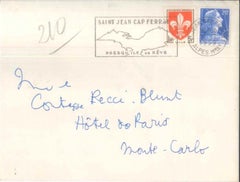 210
SAINT JEAN CAP FERRAT
PRESQU'ILE DE RÊVE
ALPES MMES
Mme
Comtesse Pecci-Blunt
Hôtel de Paris
Monte-Carlo